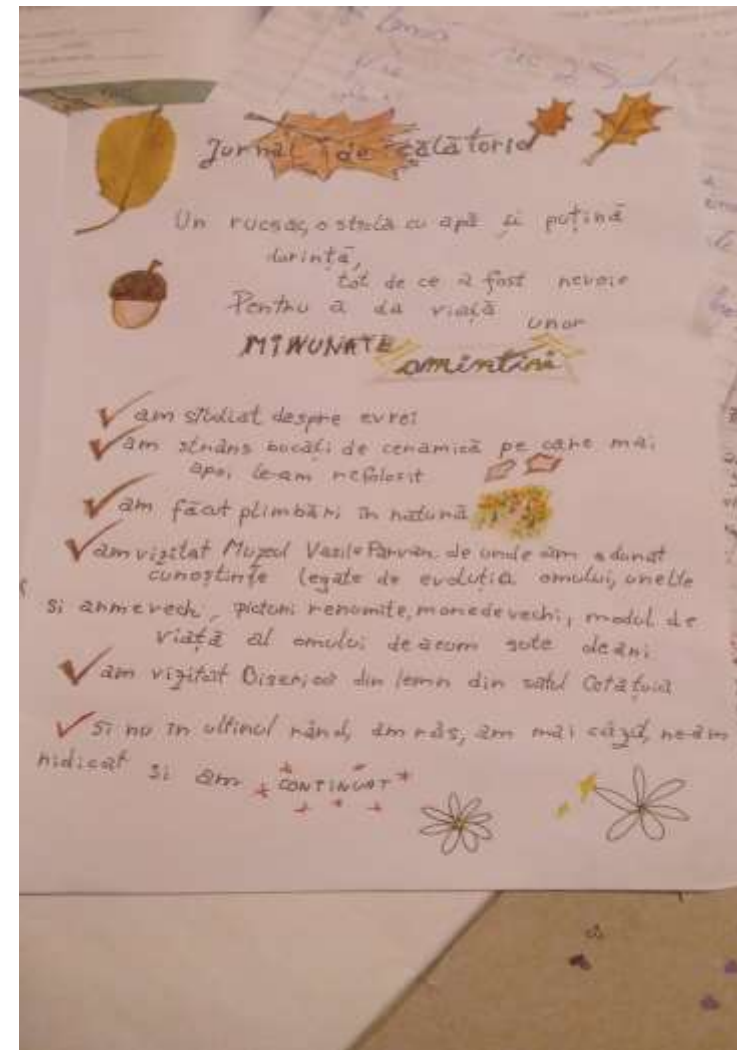 Jurnal de călătorie
Un rucsac, o sticlă cu apă și puțină
dorință,
tot de ce a fost nevoie
Pentru a da viață
unor
MINUNATE
amintiri
am studiat despre evrei
am strâns bucăți de ceramică pe care mai
apoi le-am refolosit
am făcut plimbări în natură
am vizitat Muzeul Vasile Parvan, de unde am adunat
cunoștințe legate de evoluția omului, unelte
si arme vechi, picturi renumite, monede vechi, modul de
viață al omului de acum sute de ani
am vizitat Biserica din lemn din satul Cetățuia
Si nu în ultimul rând, am râs, am mai căzut, ne-am
ridicat si am CONTINUAT